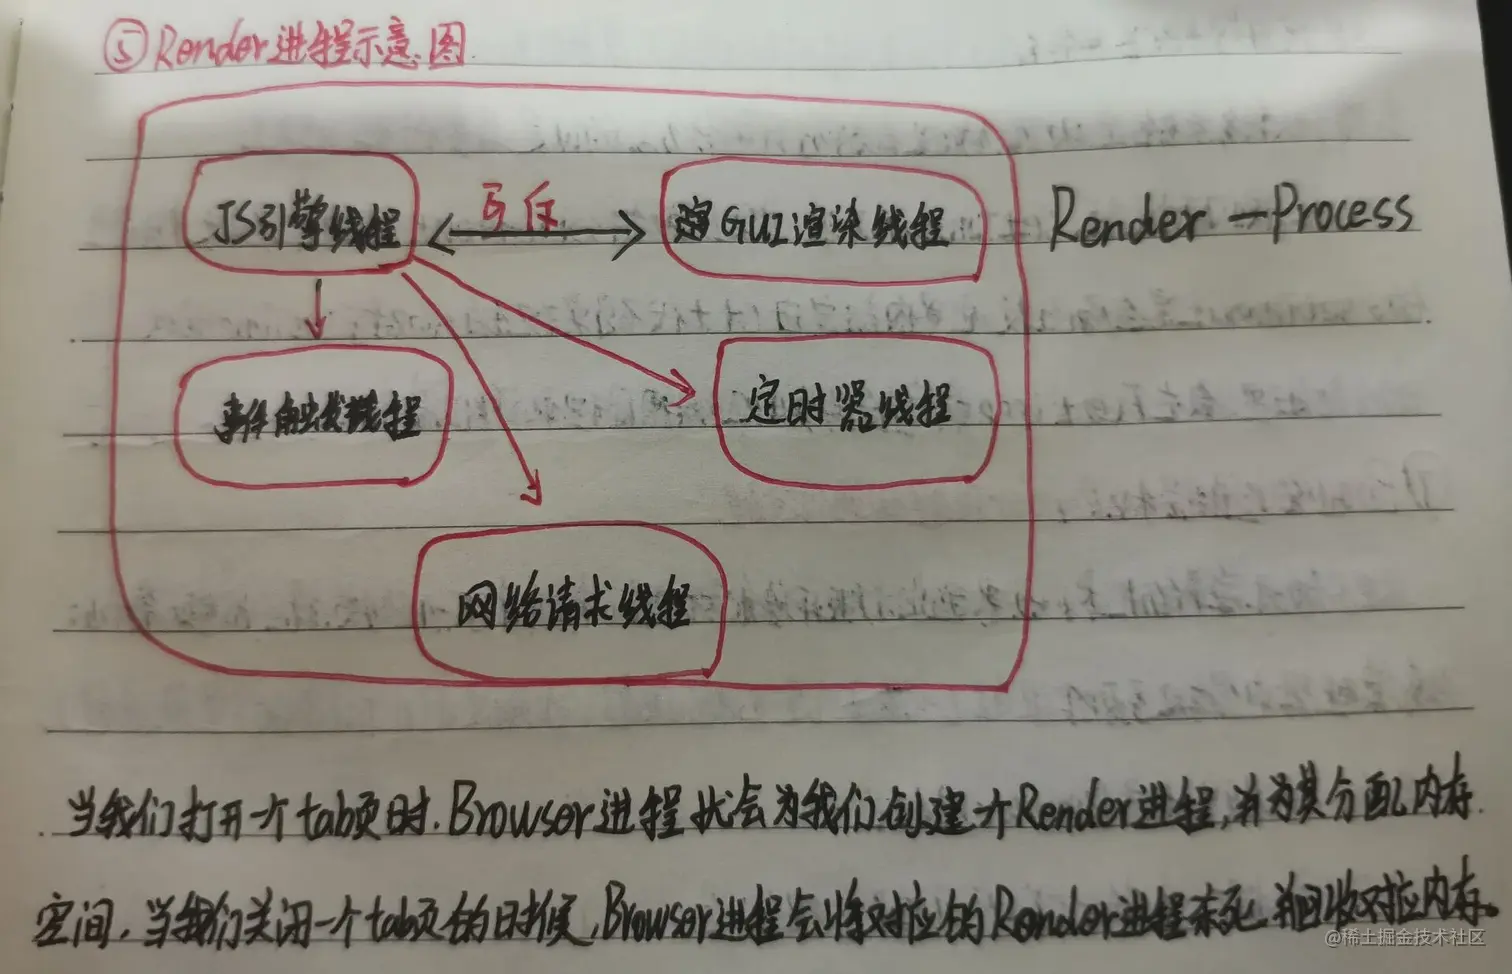 ⑤Render进程示意图
JS引擎线程
互斥
GUI渲染线程
Render-Process
事件触发线程
定时器线程
网络请求线程
当我们打开一个tab页时,Browser进程就会为我们创建一个Render进程,并为其分配内存
空间,当我们关闭一个tab页的时候,Browser进程会将对应的Render进程杀死,并回收对应内存。
@稀土掘金技术社区